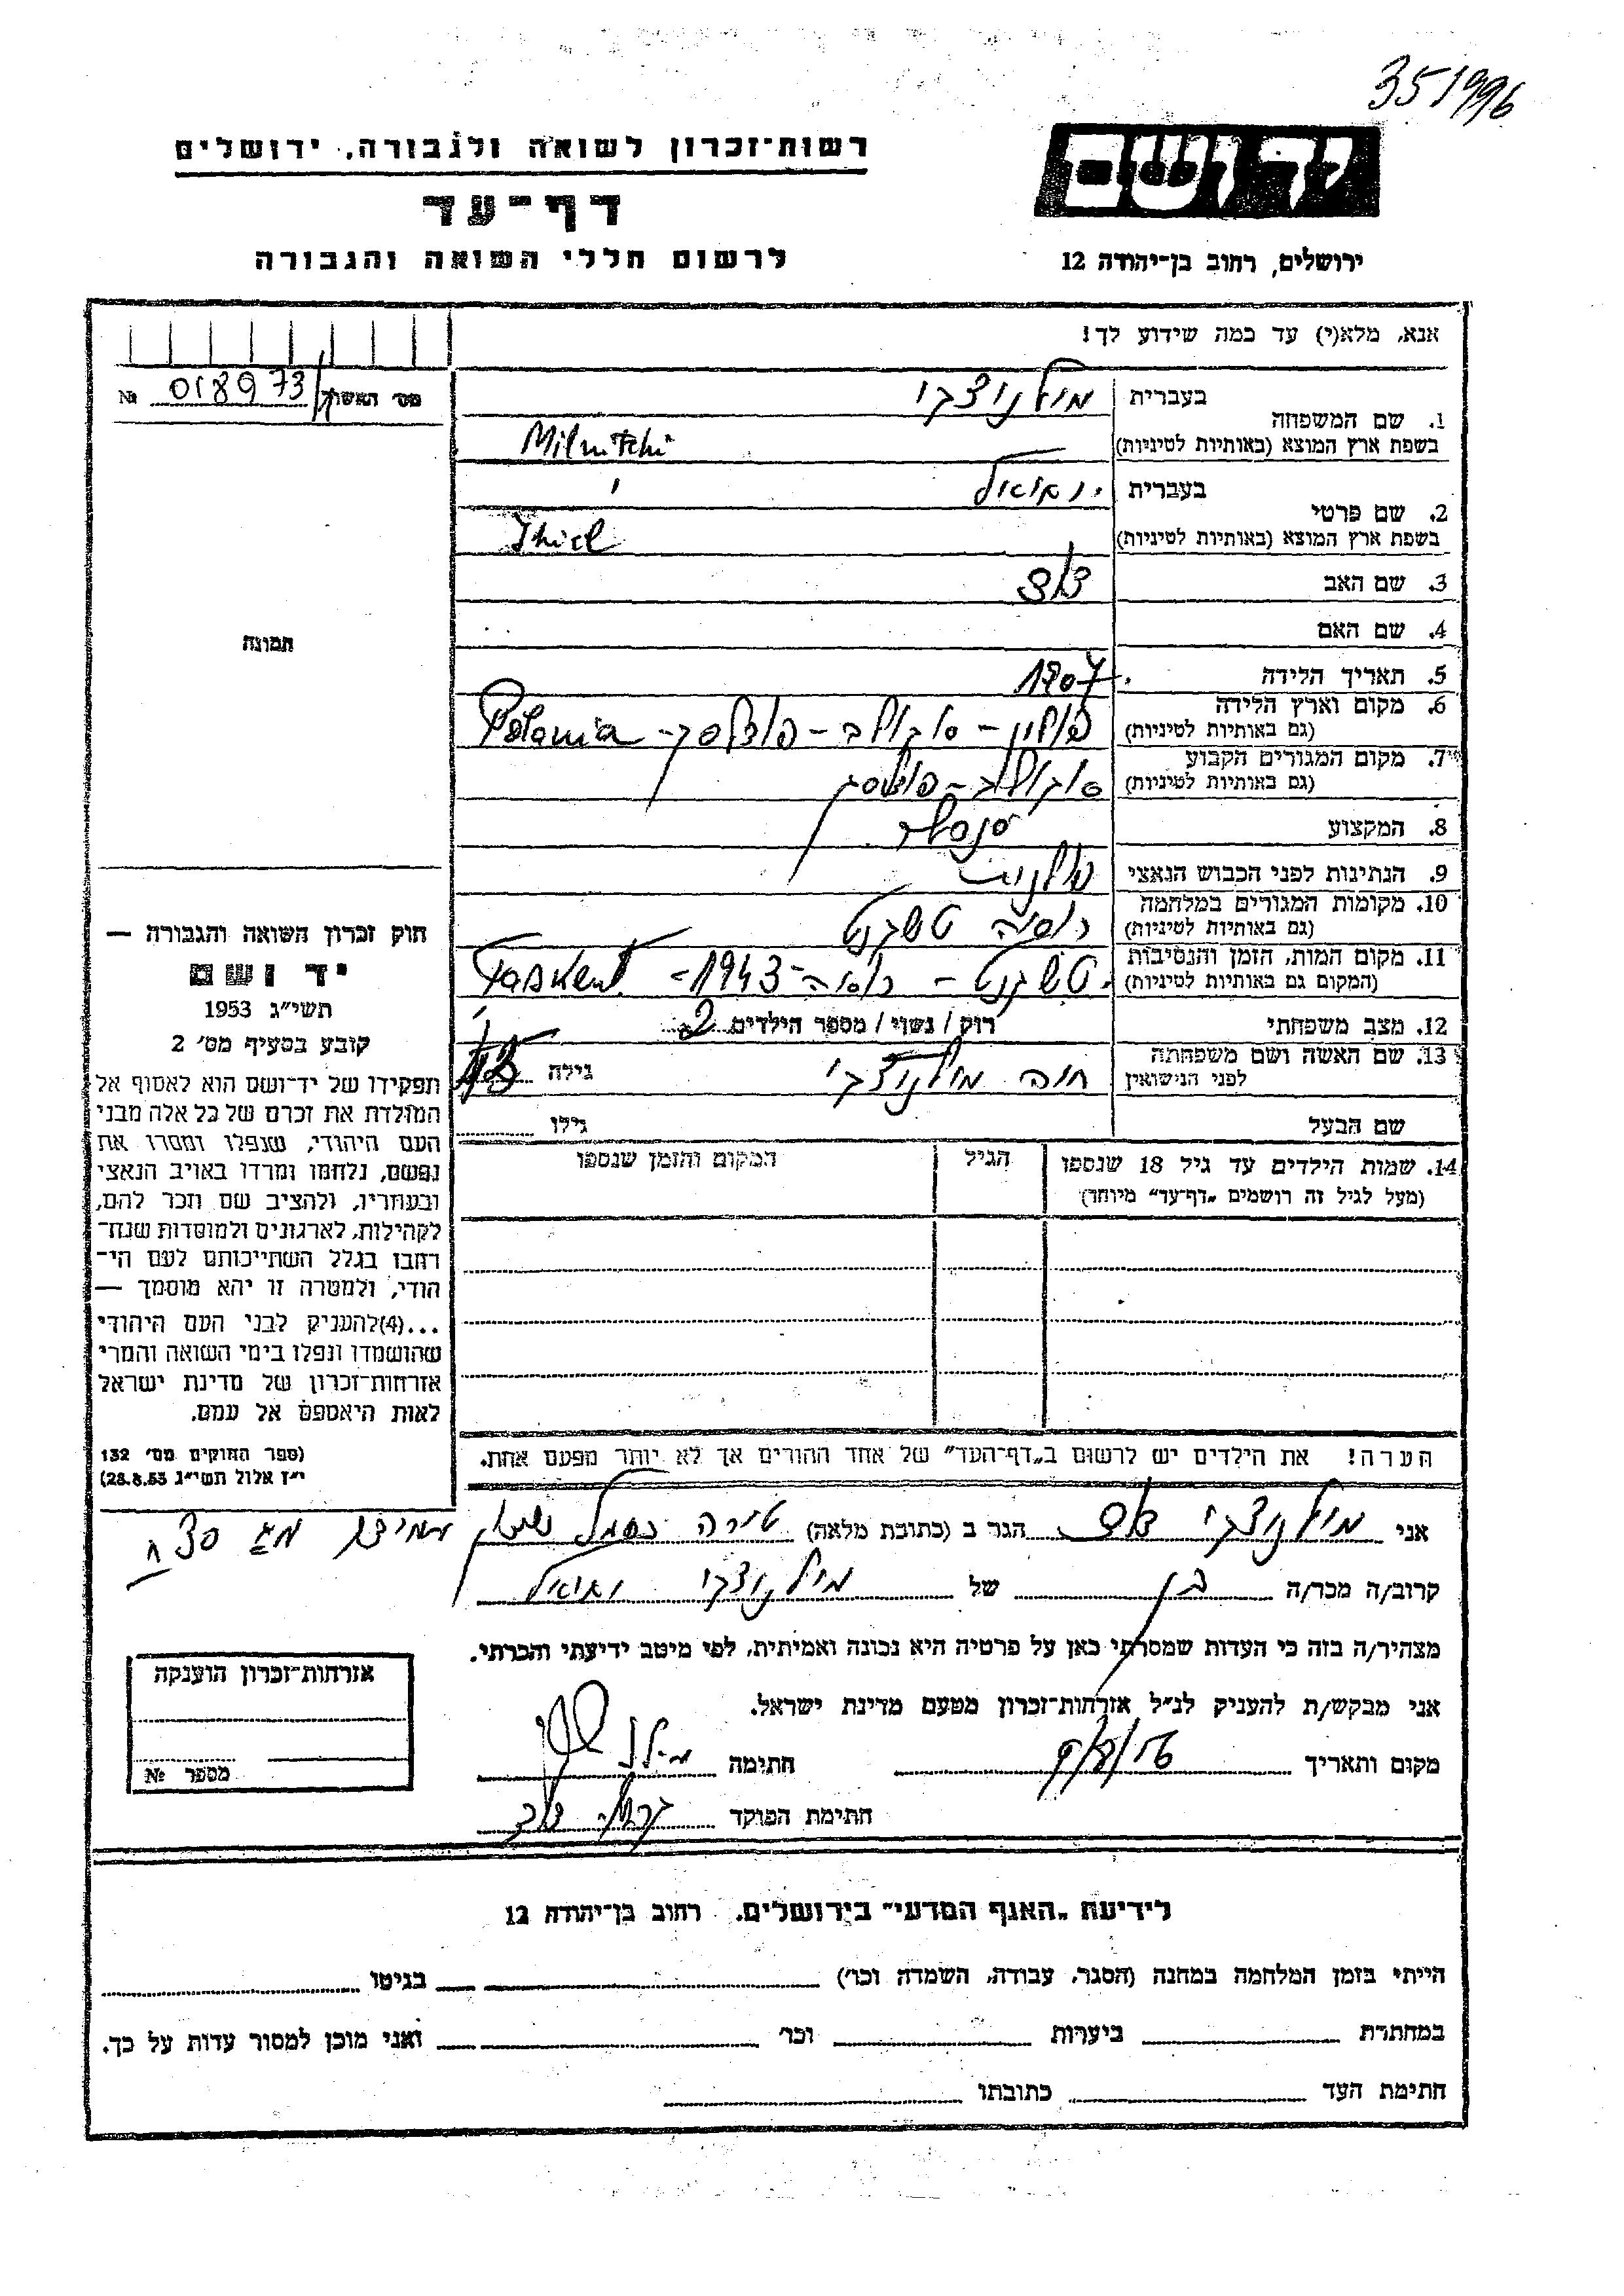 351996
רשות־זכרון לשואה ולגבורה, ירושלים
ידושם
דף־עד
לרשום חללי השואה והגבורה
ירושלים, רחוב בן־יהודה 12
אנא, מלא(י) עד כמה שידוע לך!
מס' האשה № 018973
1. שם המשפחה
בעברית מילניצקי
בשפת ארץ המוצא (באותיות לטיניות)
2. שם פרטי
בעברית
בשפת ארץ המוצא (באותיות לטיניות)
3. שם האב
4. שם האם
תמונה
5. תאריך הלידה 1907
6. מקום וארץ הלידה
(גם באותיות לטיניות) פולין - סוקולוב - פודלסק - Polonia
7. מקום המגורים הקבוע
(גם באותיות לטיניות) סוקולוב - פודלסק
8. המקצוע
9. הנתינות לפני הכבוש הנאצי פולנית
10. מקומות המגורים במלחמה
(גם באותיות לטיניות) רוסיה טשקנט
11. מקום המות, הזמן והנסיבות
(המקום גם באותיות לטיניות) טשקנט - רוסיה - 1943 - Taskent
12. מצב משפחתי רווק / נשוי / מספר הילדים 2
13. שם האשה ושם משפחתה
לפני הנישואין חיה מילניצקי גילה
שם הבעל גילו
14. שמות הילדים עד גיל 18 שנספו
(מעל לגיל זה רושמים „דף־עד" מיוחד)
הגיל
המקום והזמן שנספו
חוק זכרון השואה והגבורה —
יד ושם
תשי"ג 1953
קובע בסעיף מס' 2
תפקידו של יד־ושם הוא לאסוף אל
המולדת את זכרם של כל אלה מבני
העם היהודי, שנפלו ומסרו את
נפשם, נלחמו ומרדו באויב הנאצי
ובעוזריו, ולהציב שם וזכר להם,
לקהילות, לארגונים ולמוסדות שנח־
רבו בגלל השתייכותם לעם הי־
הודי, ולמטרה זו יהא מוסמך —
...(4)להעניק לבני העם היהודי
שהושמדו ונפלו בימי השואה והמרי
אזרחות־זכרון של מדינת ישראל
לאות היאספם אל עמם.
(ספר החוקים מס' 132
י"ז אלול תשי"ג 28.8.53)
הערה! את הילדים יש לרשום ב„דף־העד" של אחד ההורים אך לא יותר מפעם אחת.
אני מילניצקי הגר ב (כתובת מלאה) טירה
קרוב/ה מכר/ה בן של מילניצקי
מצהיר/ה בזה כי העדות שמסרתי כאן על פרטיה היא נכונה ואמיתית, לפי מיטב ידיעתי והכרתי.
אני מבקש/ת להעניק לנ"ל אזרחות־זכרון מטעם מדינת ישראל.
מקום ותאריך חתימה
חתימת הפוקד
אזרחות־זכרון הוענקה
מספר №
לידיעת „האגף המדעי" בירושלים, רחוב בן־יהודה 12
הייתי בזמן המלחמה במחנה (הסגר, עבודה, השמדה וכו') בגיטו
במחתרת ביערות וכו' ואני מוכן למסור עדות על כך.
חתימת העד כתובתו